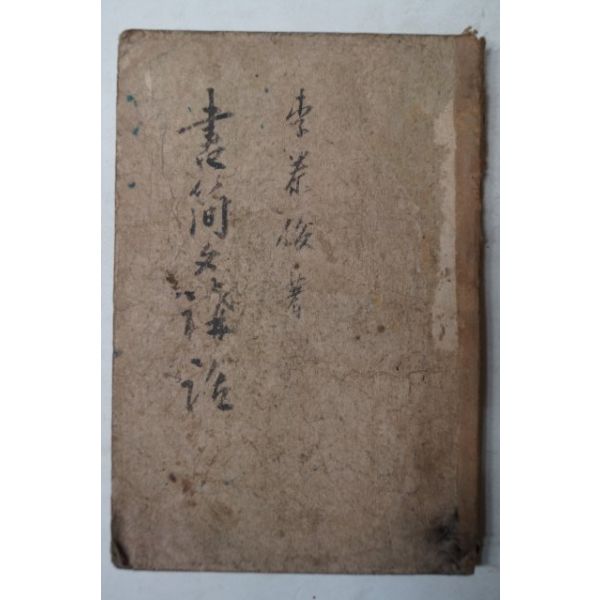 李泰俊 著
書簡文講話